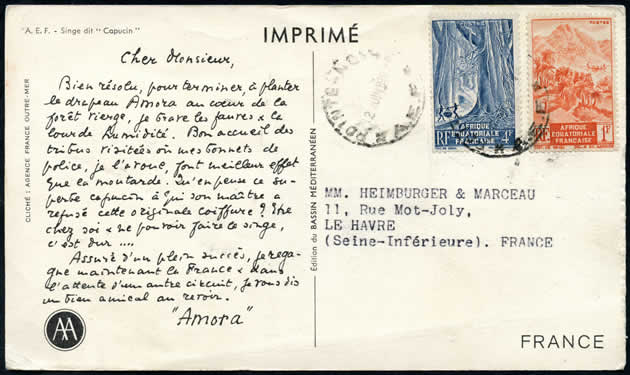 "A. E. F. - Singe dit "Capucin"
IMPRIMÉ
Cher Monsieur,
Bien résolu, pour terminer, à planter
le drapeau Amora au cœur de la
forêt vierge, je brave les fauves & la
lourde humidité. Bon accueil des
tribus visitées où mes bonnets de
police, je l'avoue, font meilleur effet
que la moutarde. Qu'en pense ce su-
perbe capucin à qui son maître a
refusé cette originale coiffure ? Etre
chez soi & ne pouvoir faire le singe,
c'est dur ....
Assuré d'un plein succès, je rega-
gne maintenant la France & dans
l'attente d'un autre circuit, je vous dis
un bien amical au revoir.
"Amora"
AA
CLICHÉ : AGENCE FRANCE OUTRE-MER
Édition du BASSIN MÉDITERRANÉEN
POINTE-NOIRE
A.E.F.
RF AFRIQUE
ÉQUATORIALE
FRANÇAISE 4F
POSTES
AFRIQUE
ÉQUATORIALE
FRANÇAISE 1F
MM. HEIMBURGER & MARCEAU
11, Rue Mot-Joly,
LE HAVRE
(Seine-Inférieure). FRANCE
FRANCE